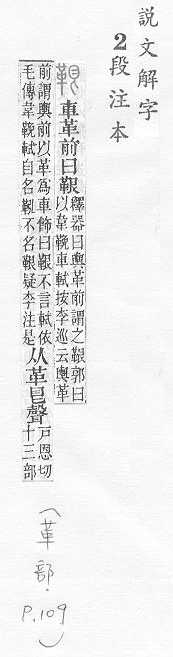 説文解字
2段注本
車革前曰䩲釋器曰輿革前謂之䩲郭曰
以韋鞔車軾按李巡云輿革
前謂輿前以革爲車飾曰䩲不言軾依
毛傳韋鞔軾自名鞃不名䩲疑李注是从革㫐聲戸恩切
十三部
(革部.
P.109)